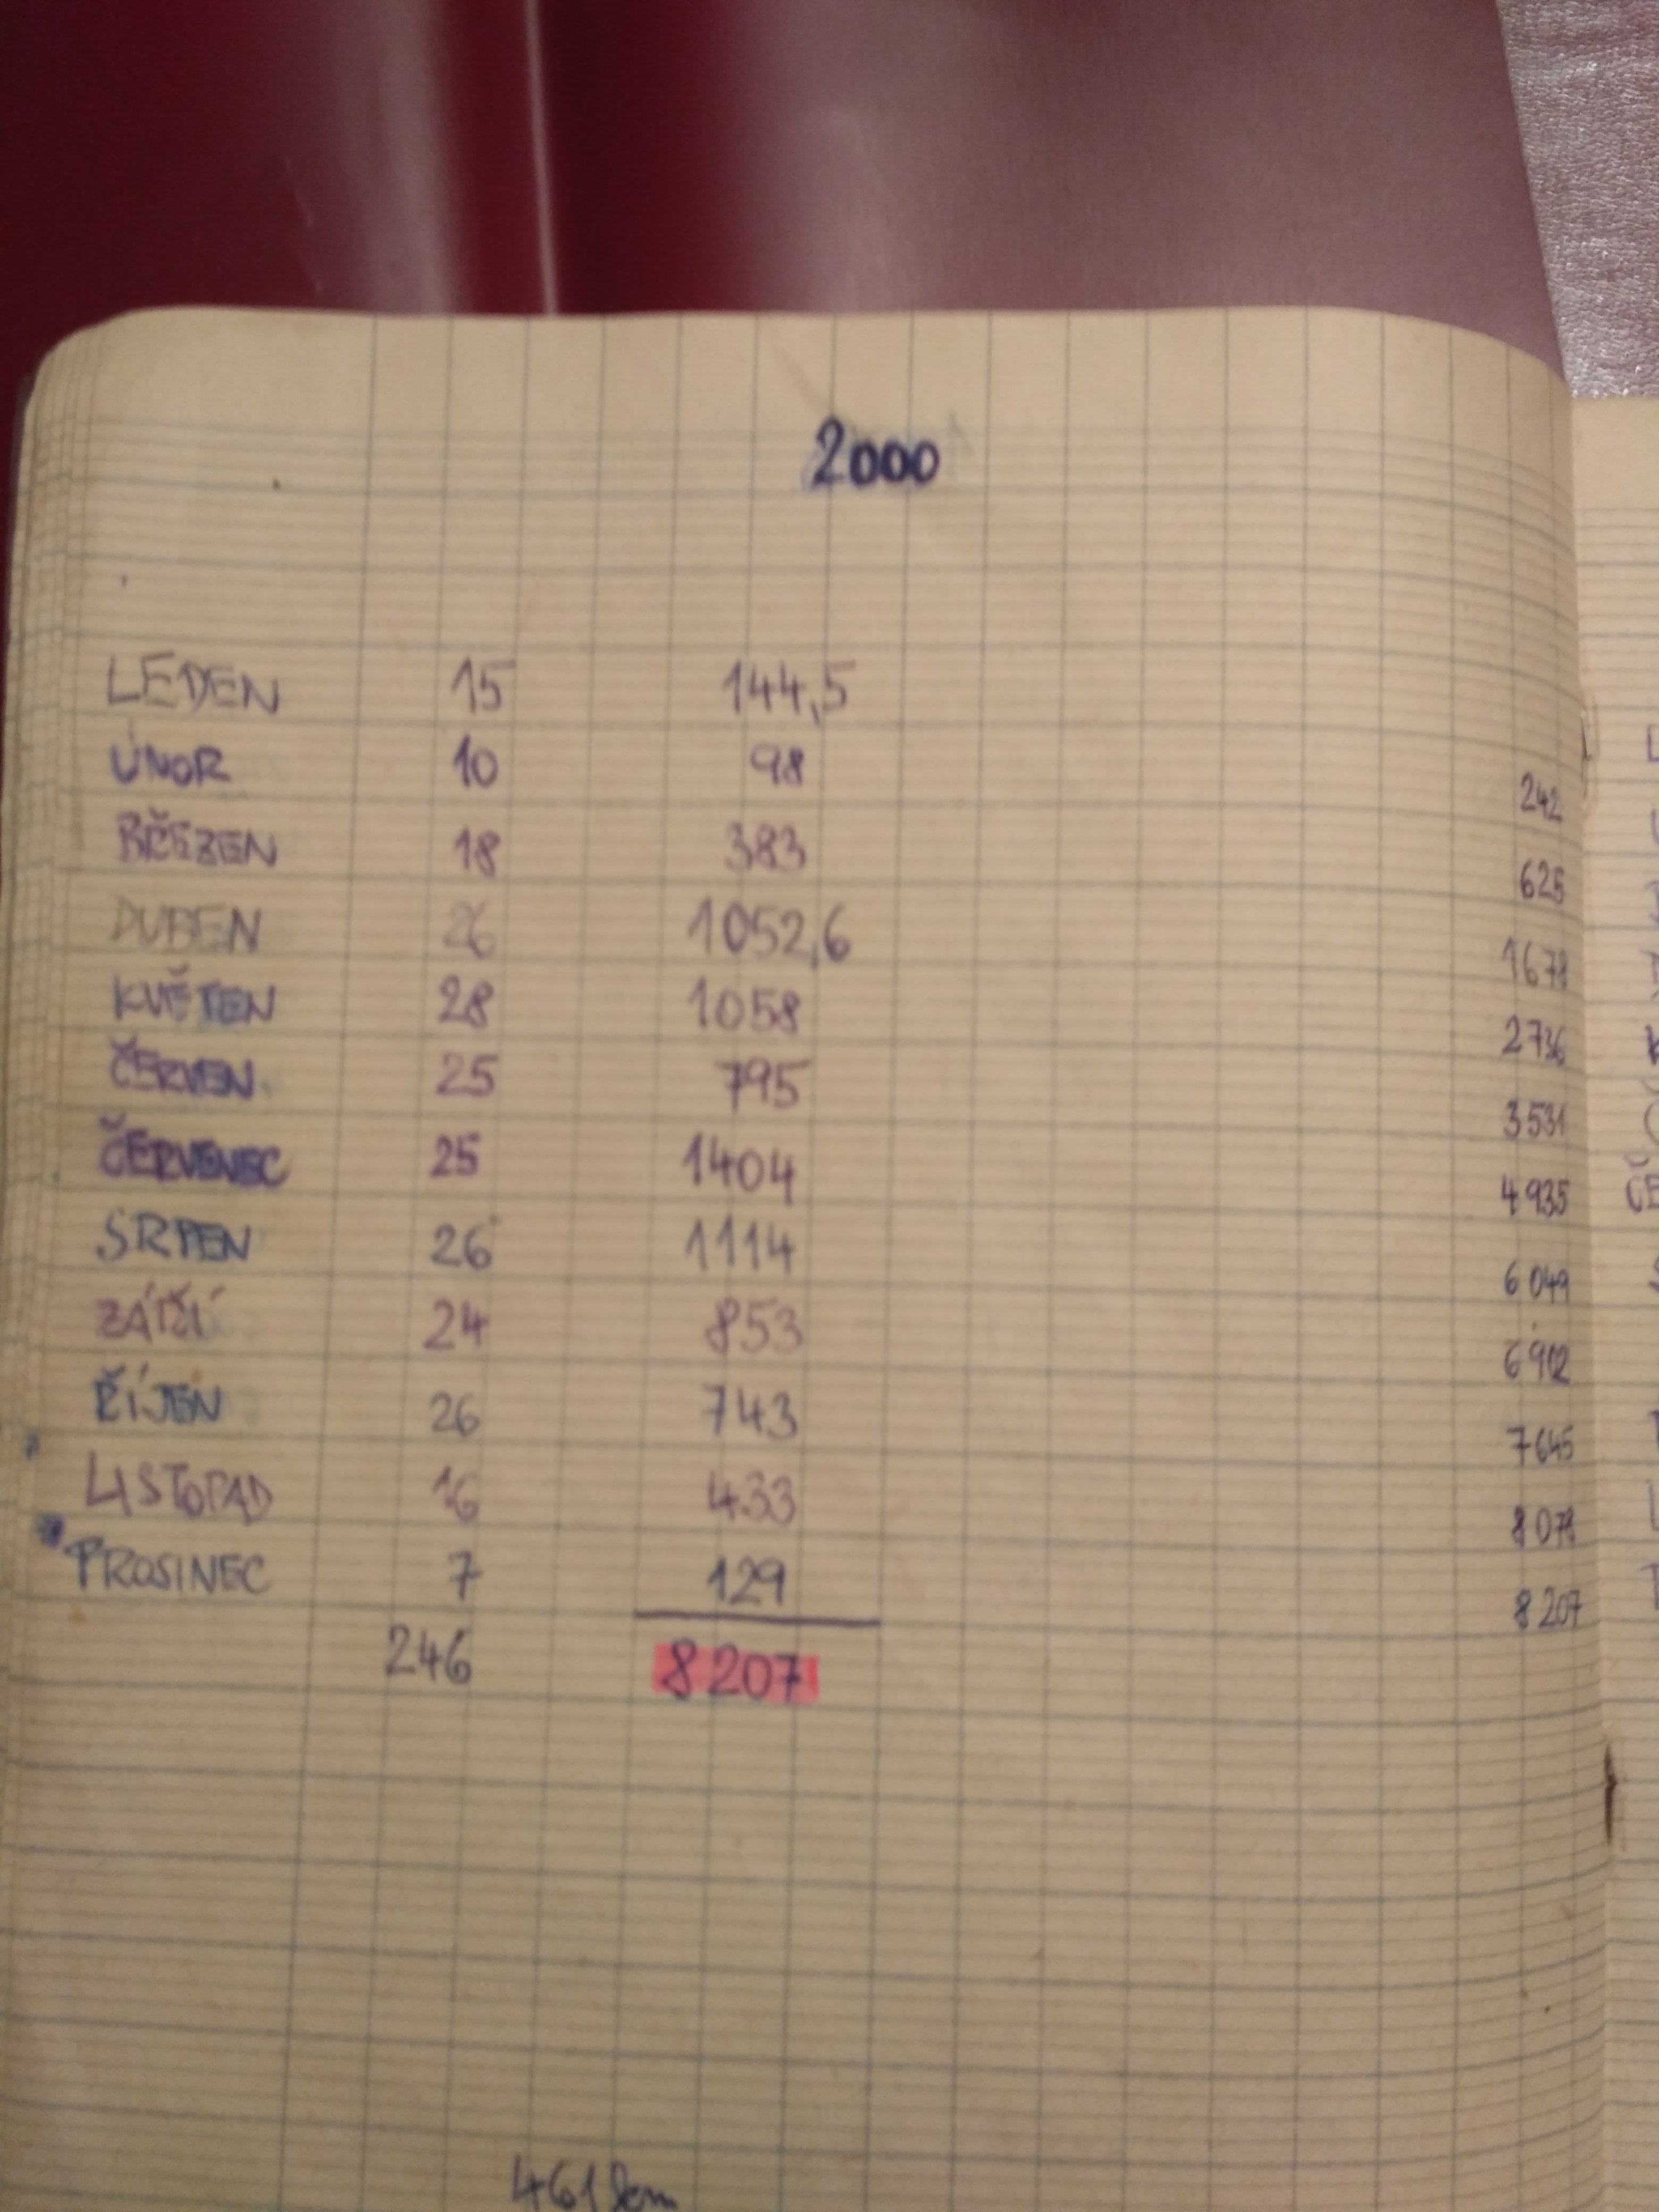 2000
LEDEN 15 144,5
ÚNOR 10 98 242
BŘEZEN 18 383 625
DUBEN 26 1052,6 1678
KVĚTEN 28 1058 2736
ČERVEN 25 795 3531
ČERVENEC 25 1404 4935
SRPEN 26 1114 6049
ZÁŘÍ 24 853 6902
ŘÍJEN 26 743 7645
LISTOPAD 16 433 8078
PROSINEC 7 129 8207
246 8207
461 km